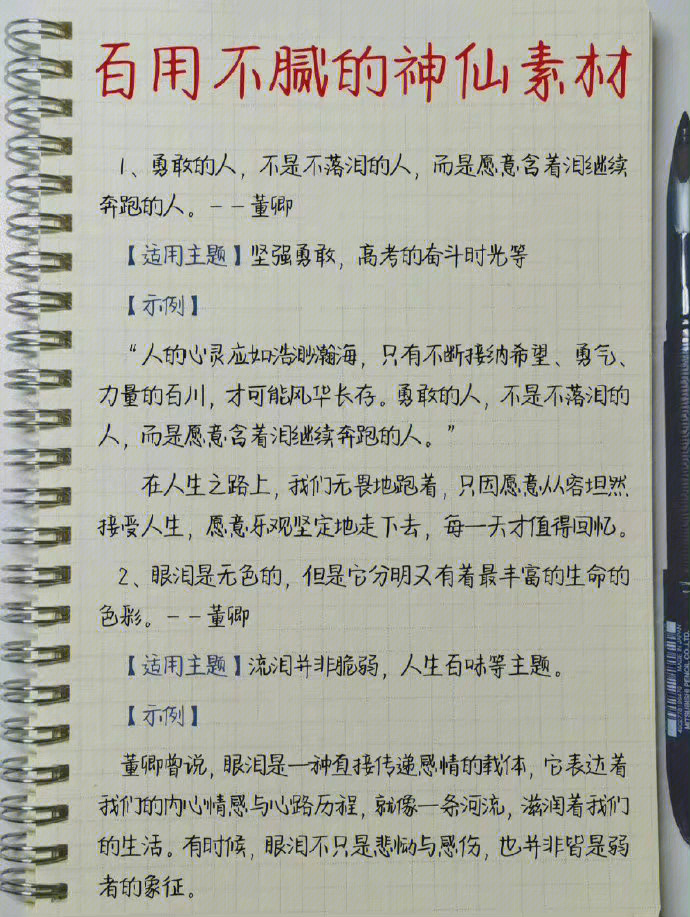 百用不腻的神仙素材
1、勇敢的人，不是不落泪的人，而是愿意含着泪继续
奔跑的人。——董卿
【适用主题】坚强勇敢，高考的奋斗时光等
【示例】
“人的心灵应如浩渺瀚海，只有不断接纳希望、勇气、
力量的百川，才可能风华长存。勇敢的人，不是不落泪的
人，而是愿意含着泪继续奔跑的人。”
在人生之路上，我们无畏地跑着，只因愿意从容坦然
接受人生，愿意乐观坚定地走下去，每一天才值得回忆。
2、眼泪是无色的，但是它分明又有着最丰富的生命的
色彩。——董卿
【适用主题】流泪并非脆弱，人生百味等主题。
【示例】
董卿曾说，眼泪是一种直接传递感情的载体，它表达着
我们的内心情感与心路历程，就像一条河流，滋润着我们
的生活。有时候，眼泪不只是悲恸与感伤，也并非皆是弱
者的象征。
MADE IN JAPAN
MITSUBISHI PENCIL CO.,LTD.